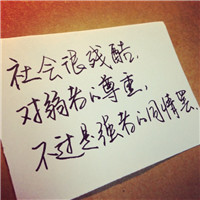 社会很残酷.
对弱者的尊重,
不过是强者的同情罢.